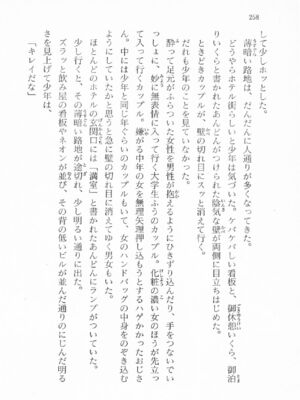 258
して少しホッとした。
薄暗い路地は、だんだんに人通りが多くなってきた。
どうやらホテル街らしいと少年は気づいた。ケバケバしい看板と、御休憩いくら、御泊
りいくらと書かれたあんどんがつけられた陰気な壁が両側に目立ちはじめた。
ときどきカップルが、壁の切れ目にスッと消えて行く。
だれも少年のことを見ていなかった。
酔って足元がふらついた女性を男性が抱えるようにひきずり込んだり、手をつないでい
っしょに、妙に無表情に入って行く大学生ふうのカップル。化粧の濃い女のほうが先立っ
て入って行くカップル。嫌がる中年の女を無理矢理押し込もうとするハゲかかったおじさ
ん。中には少年と同じ年ぐらいのカップルもいて、女のハンドバッグの中身をのぞき込む
ようにしていたかと思うと急に壁の切れ目に消えてゆく男女もいた。
ほとんどのホテルの玄関口には「満室」と書かれたあんどんにランプがついていた。
少し行くと、その薄暗い路地が途切れ、少し明るい通りに出た。
ズラッと飲み屋の看板やネオンが並び、その背の低いビルが並んだ通りのにじんだ明る
さを見上げて少年は、
「キレイだな」